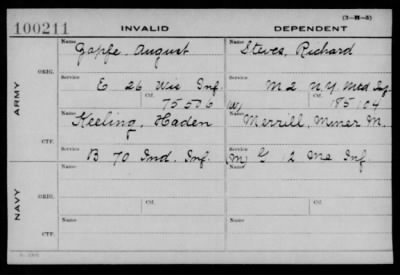 (3-H-5)
100211 INVALID DEPENDENT
Name Name
Gapfe, August Steves, Richard
ORIG. Service Service
E 26 Wis Inf M 2 N.Y. Mtd Inf
Ctf. Ctf.
75506 W 185104
ARMY
Name Name
Keeling, Haden Merrill, Miner M.
CTF. Service Service
B 70 Ind. Inf. (M) G 12 Me Inf.
Name Name
ORIG.
Service Ctf. Service Ctf.
NAVY
Name Name
CTF.